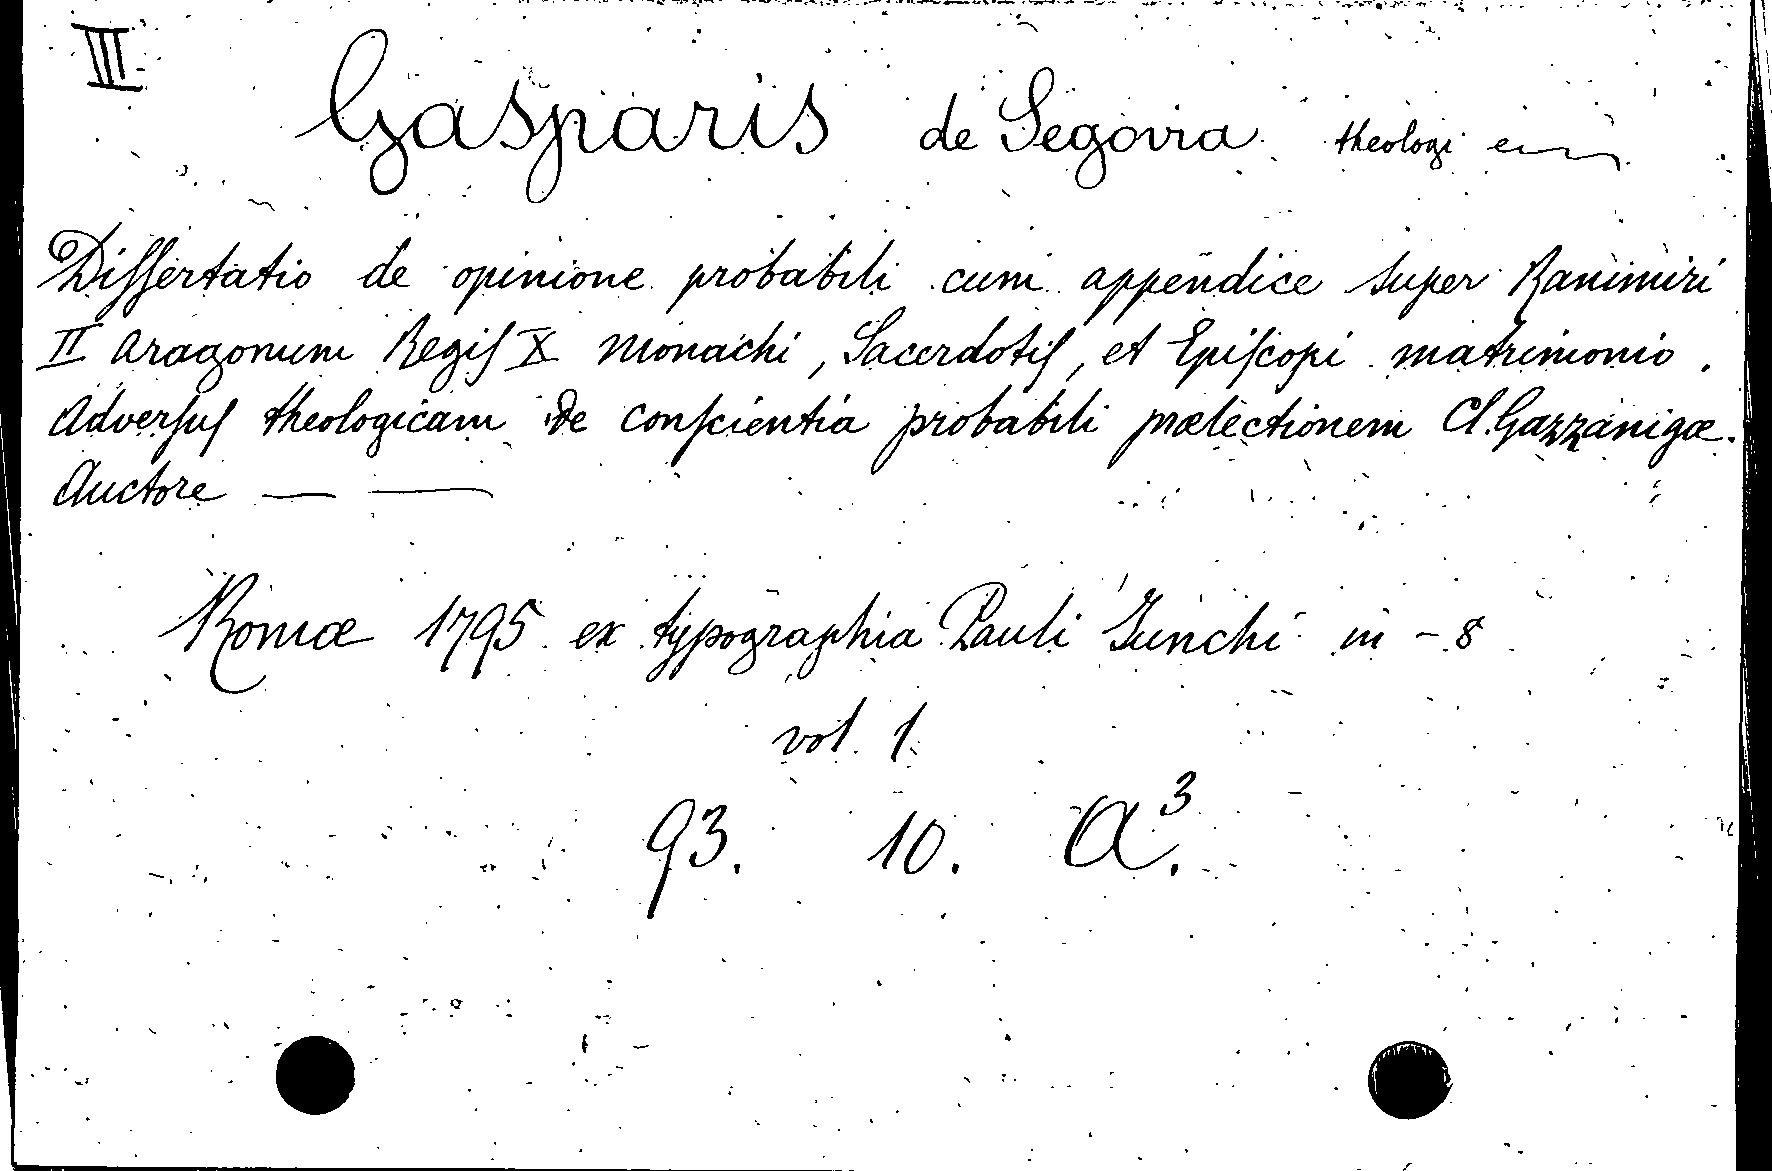 III
Gasparis de Segovia theologi
Dissertatio de opinione probabili cum appendice super Ranimiri
II Aragonum Regis X Monachi, Sacerdotis, et Episcopi matrimonio.
Adversus theologicam de conscientia probabili prælectionem Cl. Gazzanigæ.
Auctore — —
Romæ 1795 ex typographia Pauli Junchi in - 8
vol. 1.
93. 10. A³.